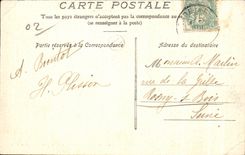 CARTE POSTALE
Tous les pays étrangers n'acceptent pas la correspondance au
(se renseigner à la poste)
02
Partie réservée à la Correspondance
Adresse du destinataire
A.
Monsieur Martin
H. Plisson
rue de la Grille
Rosny Bois
Seine